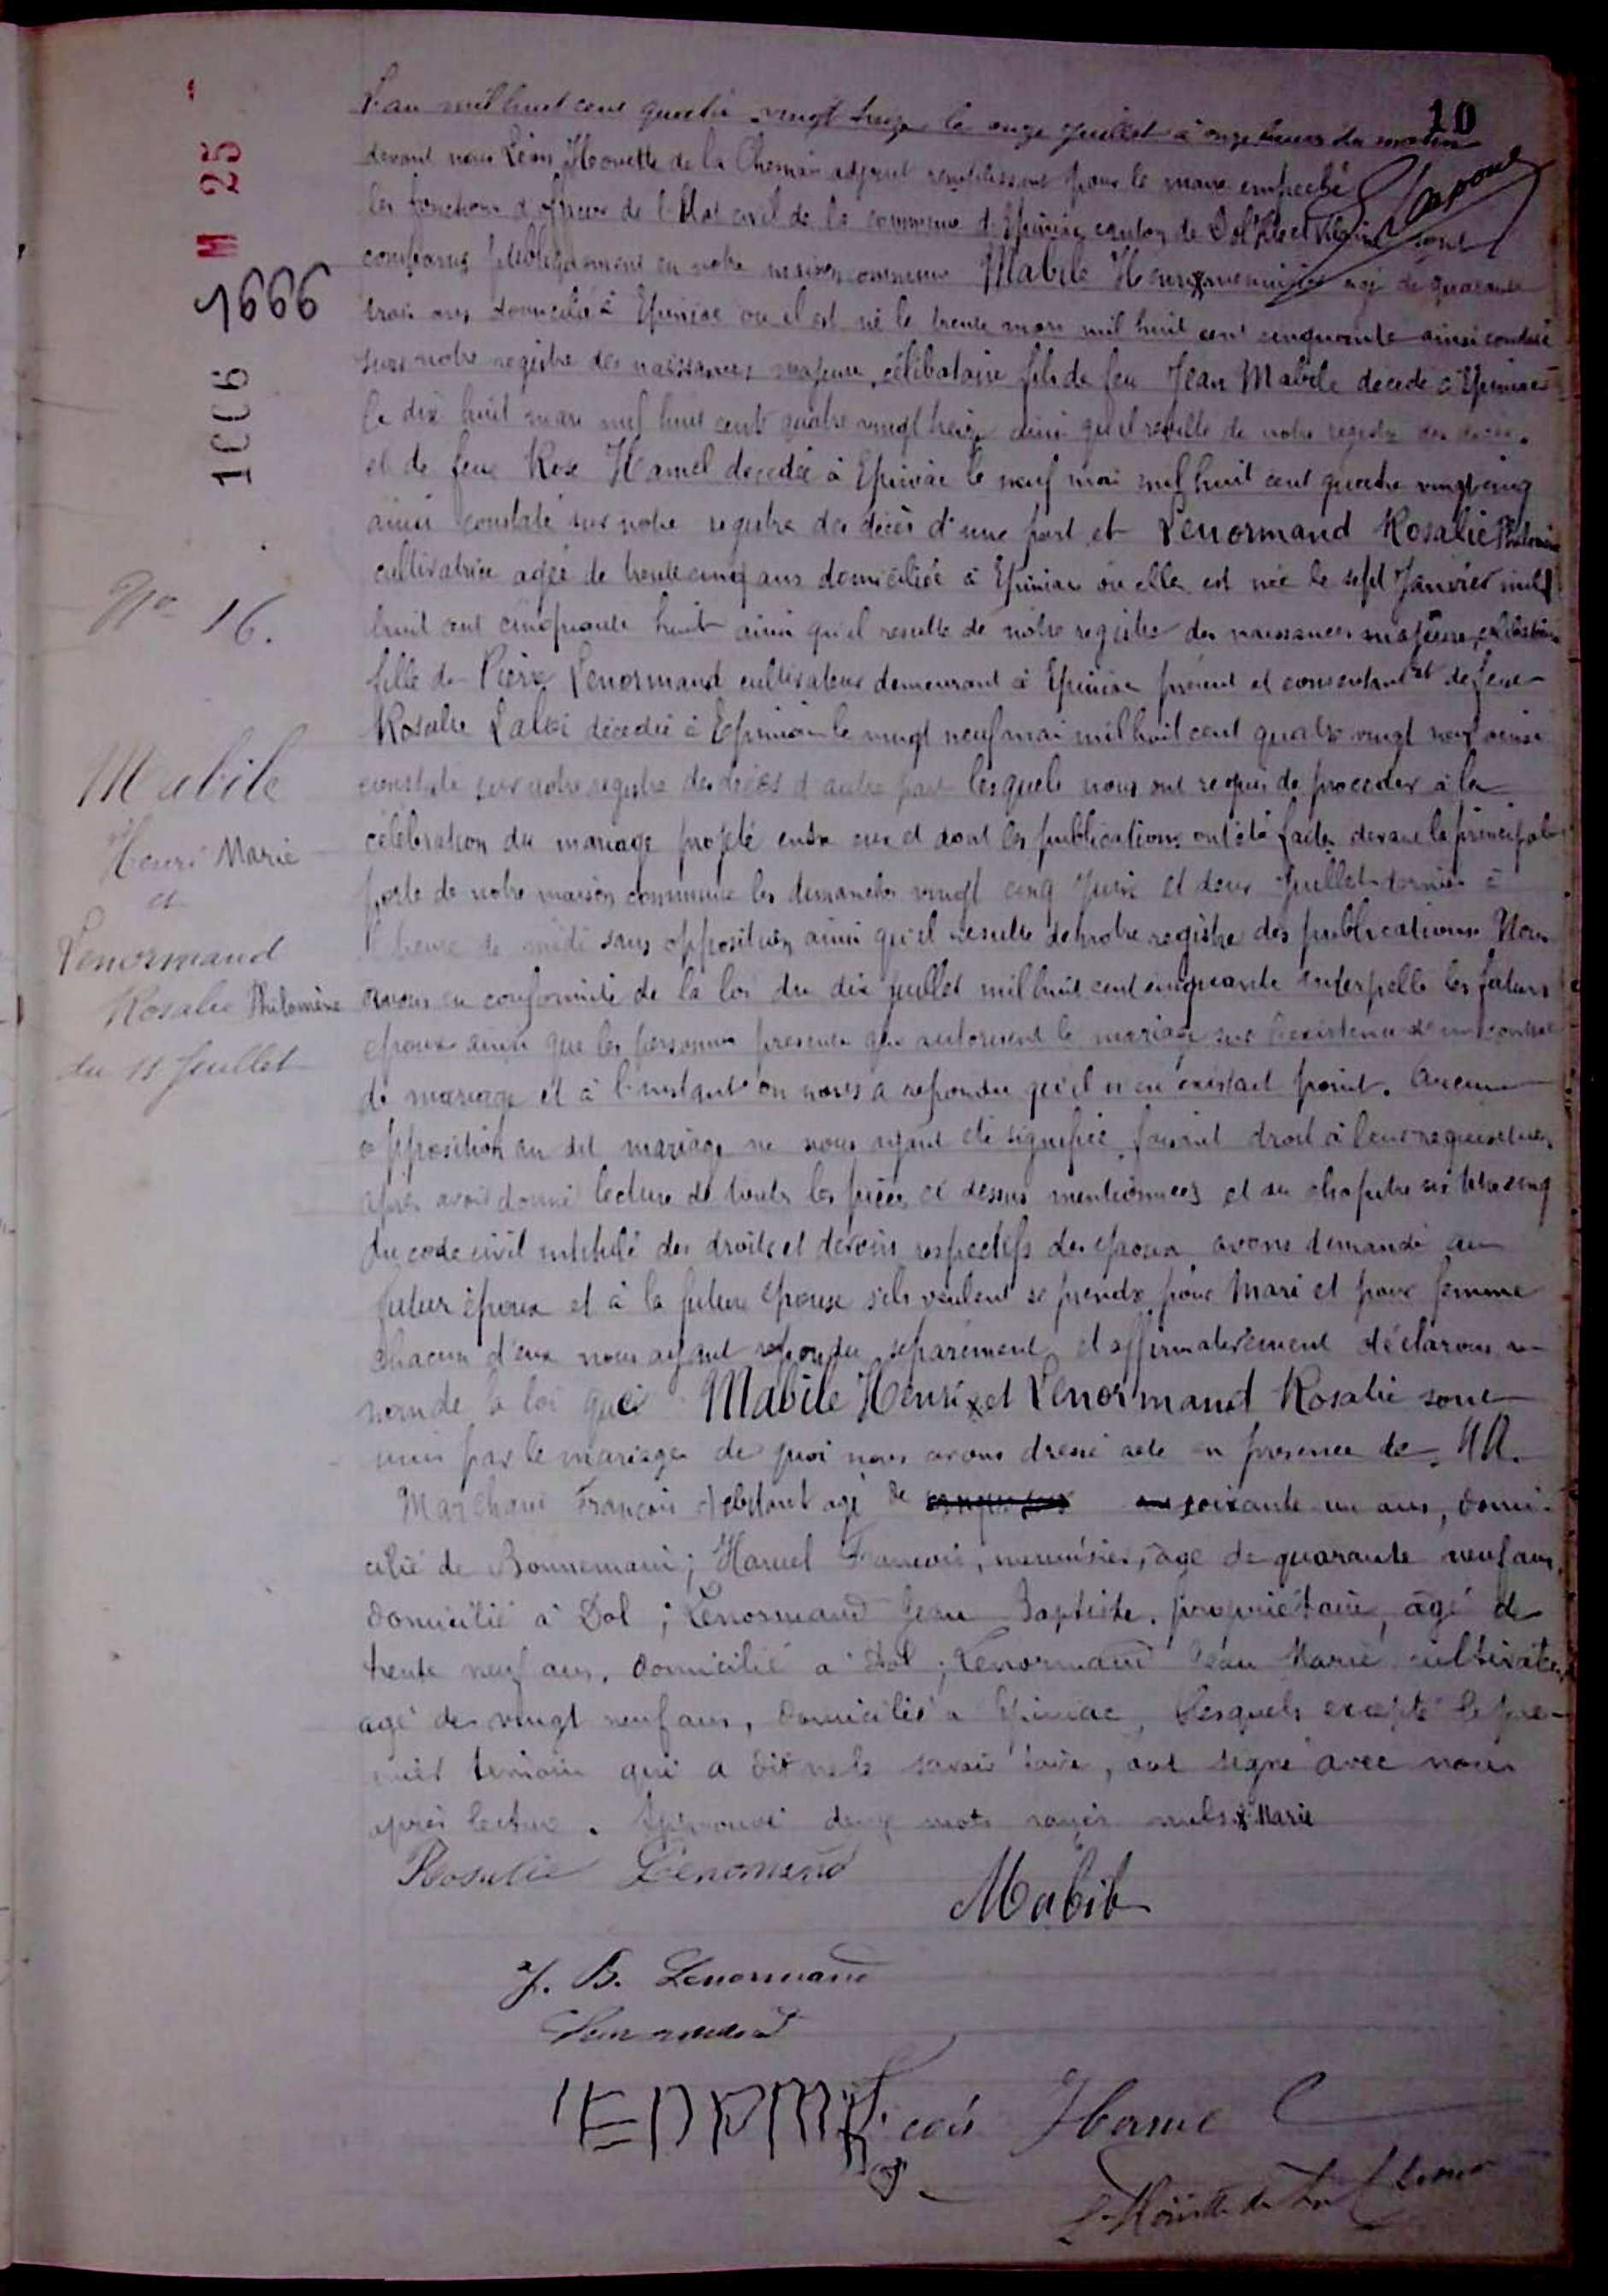 10
M 25
1CC6 5666
L'an mil huit cent quatre vingt treize le onze Juillet à onze heures du matin
devant nous Léon Houette de la Chesnais adjoint remplissant pour le maire empeché
les fonctions d'officier de l'Etat civil de la commune d'Epiniac canton de Dol Ille et Vilaine sont
comparus publiquement en notre maison commune Mabile Henri x menuisier agé de quarante
trois ans domicilié à Epiniac ou il est né le trente mars mil huit cent cinquante ainsi constaté
sur notre registre des naissances majeur, célibataire fils de feu Jean Mabile decedé à Epiniac
le dix huit mars mil huit cent quatre vingt treize ainsi qu'il résulte de notre registre des decès.
et de feue Rose Hamel decedée à Epiniac le neuf mai mil huit cent quatre vingt cinq
ainsi constaté sur notre registre des décès d'une part et Lenormand Rosalie Philomène
cultivatrice agée de trente cinq ans domiciliée à Epiniac ou elle est née le sept Janvier mil
huit cent cinquante huit ainsi qu'il resulte de notre registre des naissances majeure, célibataire
fille de Pierre Lenormand cultivateur demeurant à Epiniac présent et consentant et de feue
Rosalie décedée à Epiniac le vingt neuf mai mil huit cent quatre vingt neuf ainsi
constaté sur notre registre des décès d'autre part lesquels nous ont requis de proceder à la
célébration du mariage projeté entre eux et dont les publications ont été faites devant la principale
porte de notre maison commune les dimanches vingt cinq Juin et deux Juillet dernier à
l'heure de midi sans opposition ainsi qu'il resulte de notre registre des publications. Nous
avons en conformité de la loi du dix juillet mil huit cent cinquante interpellé les futurs
epoux ainsi que les personnes presentes qui autorisent le mariage sur l'existence d'un contrat
de mariage et à l'instant on nous a repondu qu'il n'en existait point. Aucune
opposition au dit mariage ne nous ayant été signifiée faisant droit à leur requisition
après avoir donné lecture de toutes les pièces ci dessus mentionnées et du chapitre six titre cinq
du code civil intitulé des droits et devoirs respectifs des epoux avons demandé au
futur époux et à la future épouse s'ils veulent se prendre pour Mari et pour femme
chacun d'eux nous ayant repondu séparément et affirmativement déclarons au
nom de la loi que Mabile Henri x et Lenormand Rosalie sont
unis par le mariage de quoi nous avons dressé acte en presence de MM.
Marchand François debitant agé de soixante un ans, domi-
cilié de Bonnemain; Hamel François, menuisier, âgé de quarante neuf ans,
domicilié à Dol; Lenormand Jean Baptiste, propriétaire, âgé de
trente neuf ans, domicilié à Dol; Lenormand Jean Marie cultivateur
agé de vingt neuf ans, domicilié à Epiniac, lesquels excepté le pre-
mier temoin qui a dit ne le savoir faire, ont signé avec nous
après lecture. Approuvé deux mots rayés nuls x Marie
Rosalie Lenormand
Mabile
J. B. Lenormand
Lenormand
L. Houette de la Chesnais
No 16.
Mabile
Henri Marie
et
Lenormand
Rosalie Philomène
du 11 Juillet